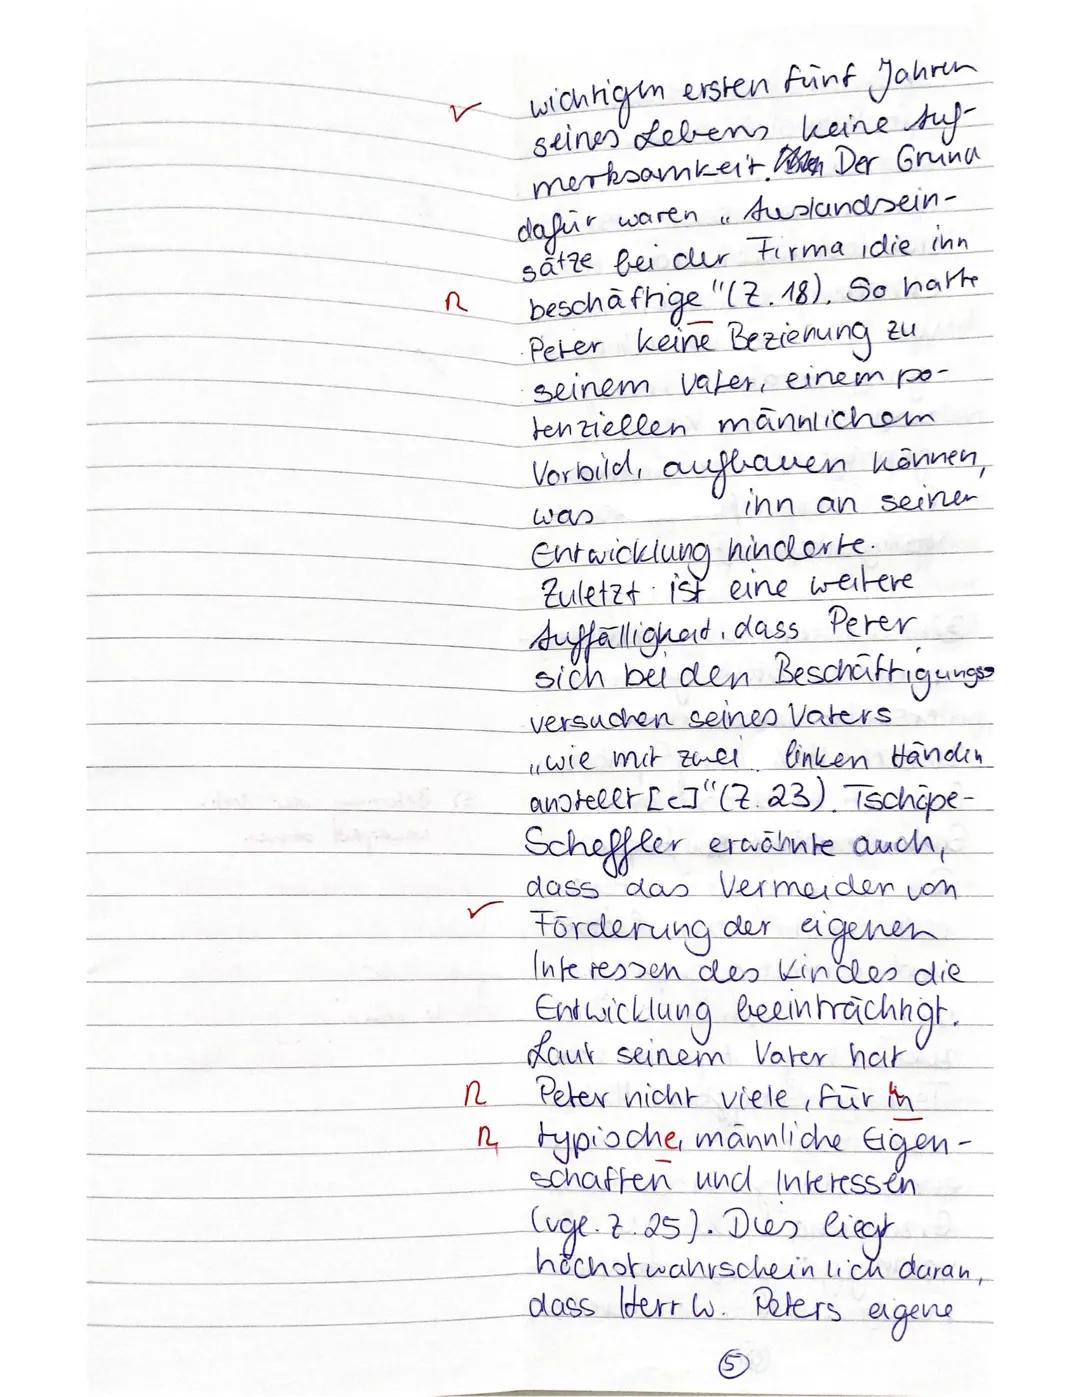 wichtigen ersten fünf Jahren
seines Lebens keine Auf-
merksamkeit. Der Grund
dafür waren „Auslandsein-
sätze bei der Firma, die ihn
R beschäftige"(Z. 18). So hatte
Peter keine Beziehung zu
seinem Vater, einem po-
tenziellen männlichem
Vorbild, aufbauen können,
was ihn an seiner
Entwicklung hinderte.
Zuletzt ist eine weitere
Auffälligkeit, dass Peter
sich bei den Beschäftigungs-
versuchen seines Vaters
„wie mit zwei linken Händen
anstellt[e]"(Z. 23). Tschöpe-
Scheffler erwähnte auch,
dass das Vermeiden von
Förderung der eigenen
Interessen des Kindes die
Entwicklung beeinträchtigt.
Laut seinem Vater hat
R Peter nicht viele, für ihn
R, typische, männliche Eigen-
schaften und Interessen
(vgl. Z. 25). Dies liegt
höchstwahrscheinlich daran,
dass Herr W. Peters eigene
5